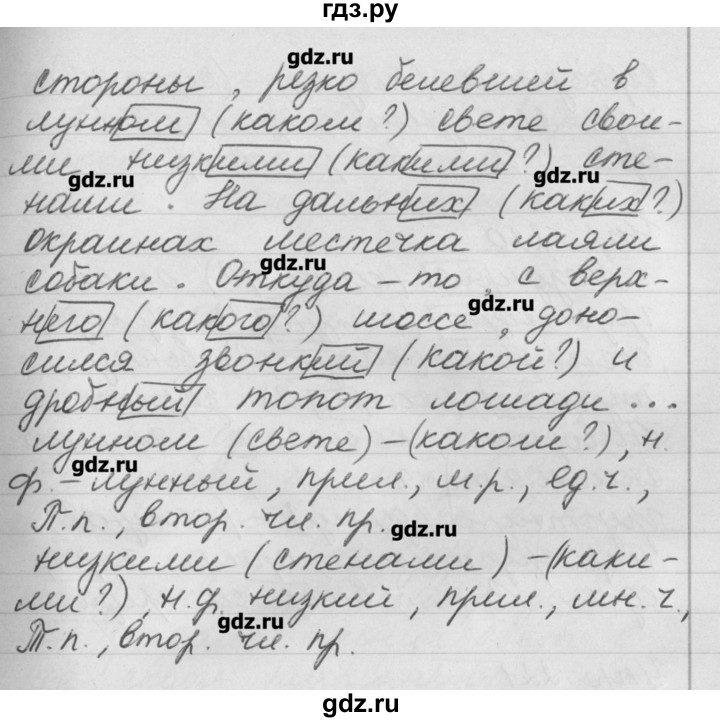 гдз.ру
стороны, резко белевшей в
лунном (каком?) свете свои-
ми низкими (какими?) сте-
нами. На дальних (каких?)
окраинах местечка лаяли
собаки. Откуда-то, с верх-
него (какого?) шоссе, доно-
сился звонкий (какой?) и
дробный топот лошади...
лунном (свете) - (каком?), н.
ф. - лунный, прил., м.р., ед.ч.,
П.п., втор. чл. пр.
низкими (стенами) - (каки-
ми?), н.ф. низкий, прил., мн.ч.,
Т.п., втор. чл. пр.
gdz.ru
gdz.ru
gdz.ru
gdz.ru
gdz.ru
gdz.ru
gdz.ru
gdz.ru
gdz.ru
gdz.ru